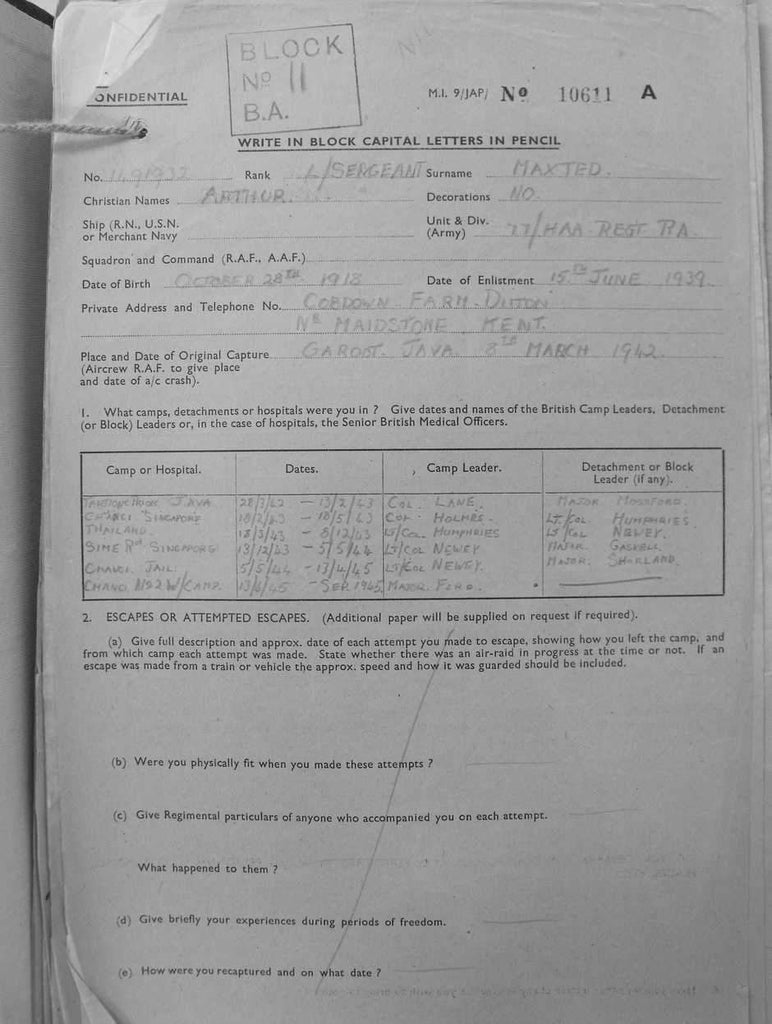 BLOCK
No 11
B.A.
ONFIDENTIAL
M.I. 9/JAP/ No 10611 A
WRITE IN BLOCK CAPITAL LETTERS IN PENCIL
No. Rank L/SERGEANT Surname MAXTED.
Christian Names ARTHUR. Decorations NO.
Ship (R.N., U.S.N.
or Merchant Navy
Unit & Div.
(Army) 77/HAA REGT RA
Squadron and Command (R.A.F., A.A.F.)
Date of Birth OCTOBER 28TH 1918 Date of Enlistment 15TH JUNE 1939.
Private Address and Telephone No. COBDOWN FARM DITTON
NR MAIDSTONE, KENT.
Place and Date of Original Capture GAROET. JAVA. 8TH MARCH 1942.
(Aircrew R.A.F. to give place
and date of a/c crash).
1. What camps, detachments or hospitals were you in ? Give dates and names of the British Camp Leaders, Detachment
(or Block) Leaders or, in the case of hospitals, the Senior British Medical Officers.
Camp or Hospital. Dates. Camp Leader. Detachment or Block
Leader (if any).
JAVA 28/3/42 — 13/2/43 COL. LANE. MAJOR
CHANGI SINGAPORE 18/2/43 — 18/5/43 COL. HOLMES. LT/COL HUMPHRIES
THAILAND. 18/5/43 — 8/12/43 LT/COL. HUMPHRIES LT/COL NEWEY.
SIME RD SINGAPORE 13/12/43 — 5/5/44 LT/COL NEWEY MAJOR. GASKELL
CHANGI JAIL. 5/5/44 — 13/4/45 LT/COL NEWEY. MAJOR. SHARLAND.
CHANGI No2 W/CAMP. 13/4/45 — SEP. 1945 MAJOR. FORD.
2. ESCAPES OR ATTEMPTED ESCAPES. (Additional paper will be supplied on request if required).
(a) Give full description and approx. date of each attempt you made to escape, showing how you left the camp, and
from which camp each attempt was made. State whether there was an air-raid in progress at the time or not. If an
escape was made from a train or vehicle the approx. speed and how it was guarded should be included.
(b) Were you physically fit when you made these attempts ?
(c) Give Regimental particulars of anyone who accompanied you on each attempt.
What happened to them ?
(d) Give briefly your experiences during periods of freedom.
(e) How were you recaptured and on what date ?